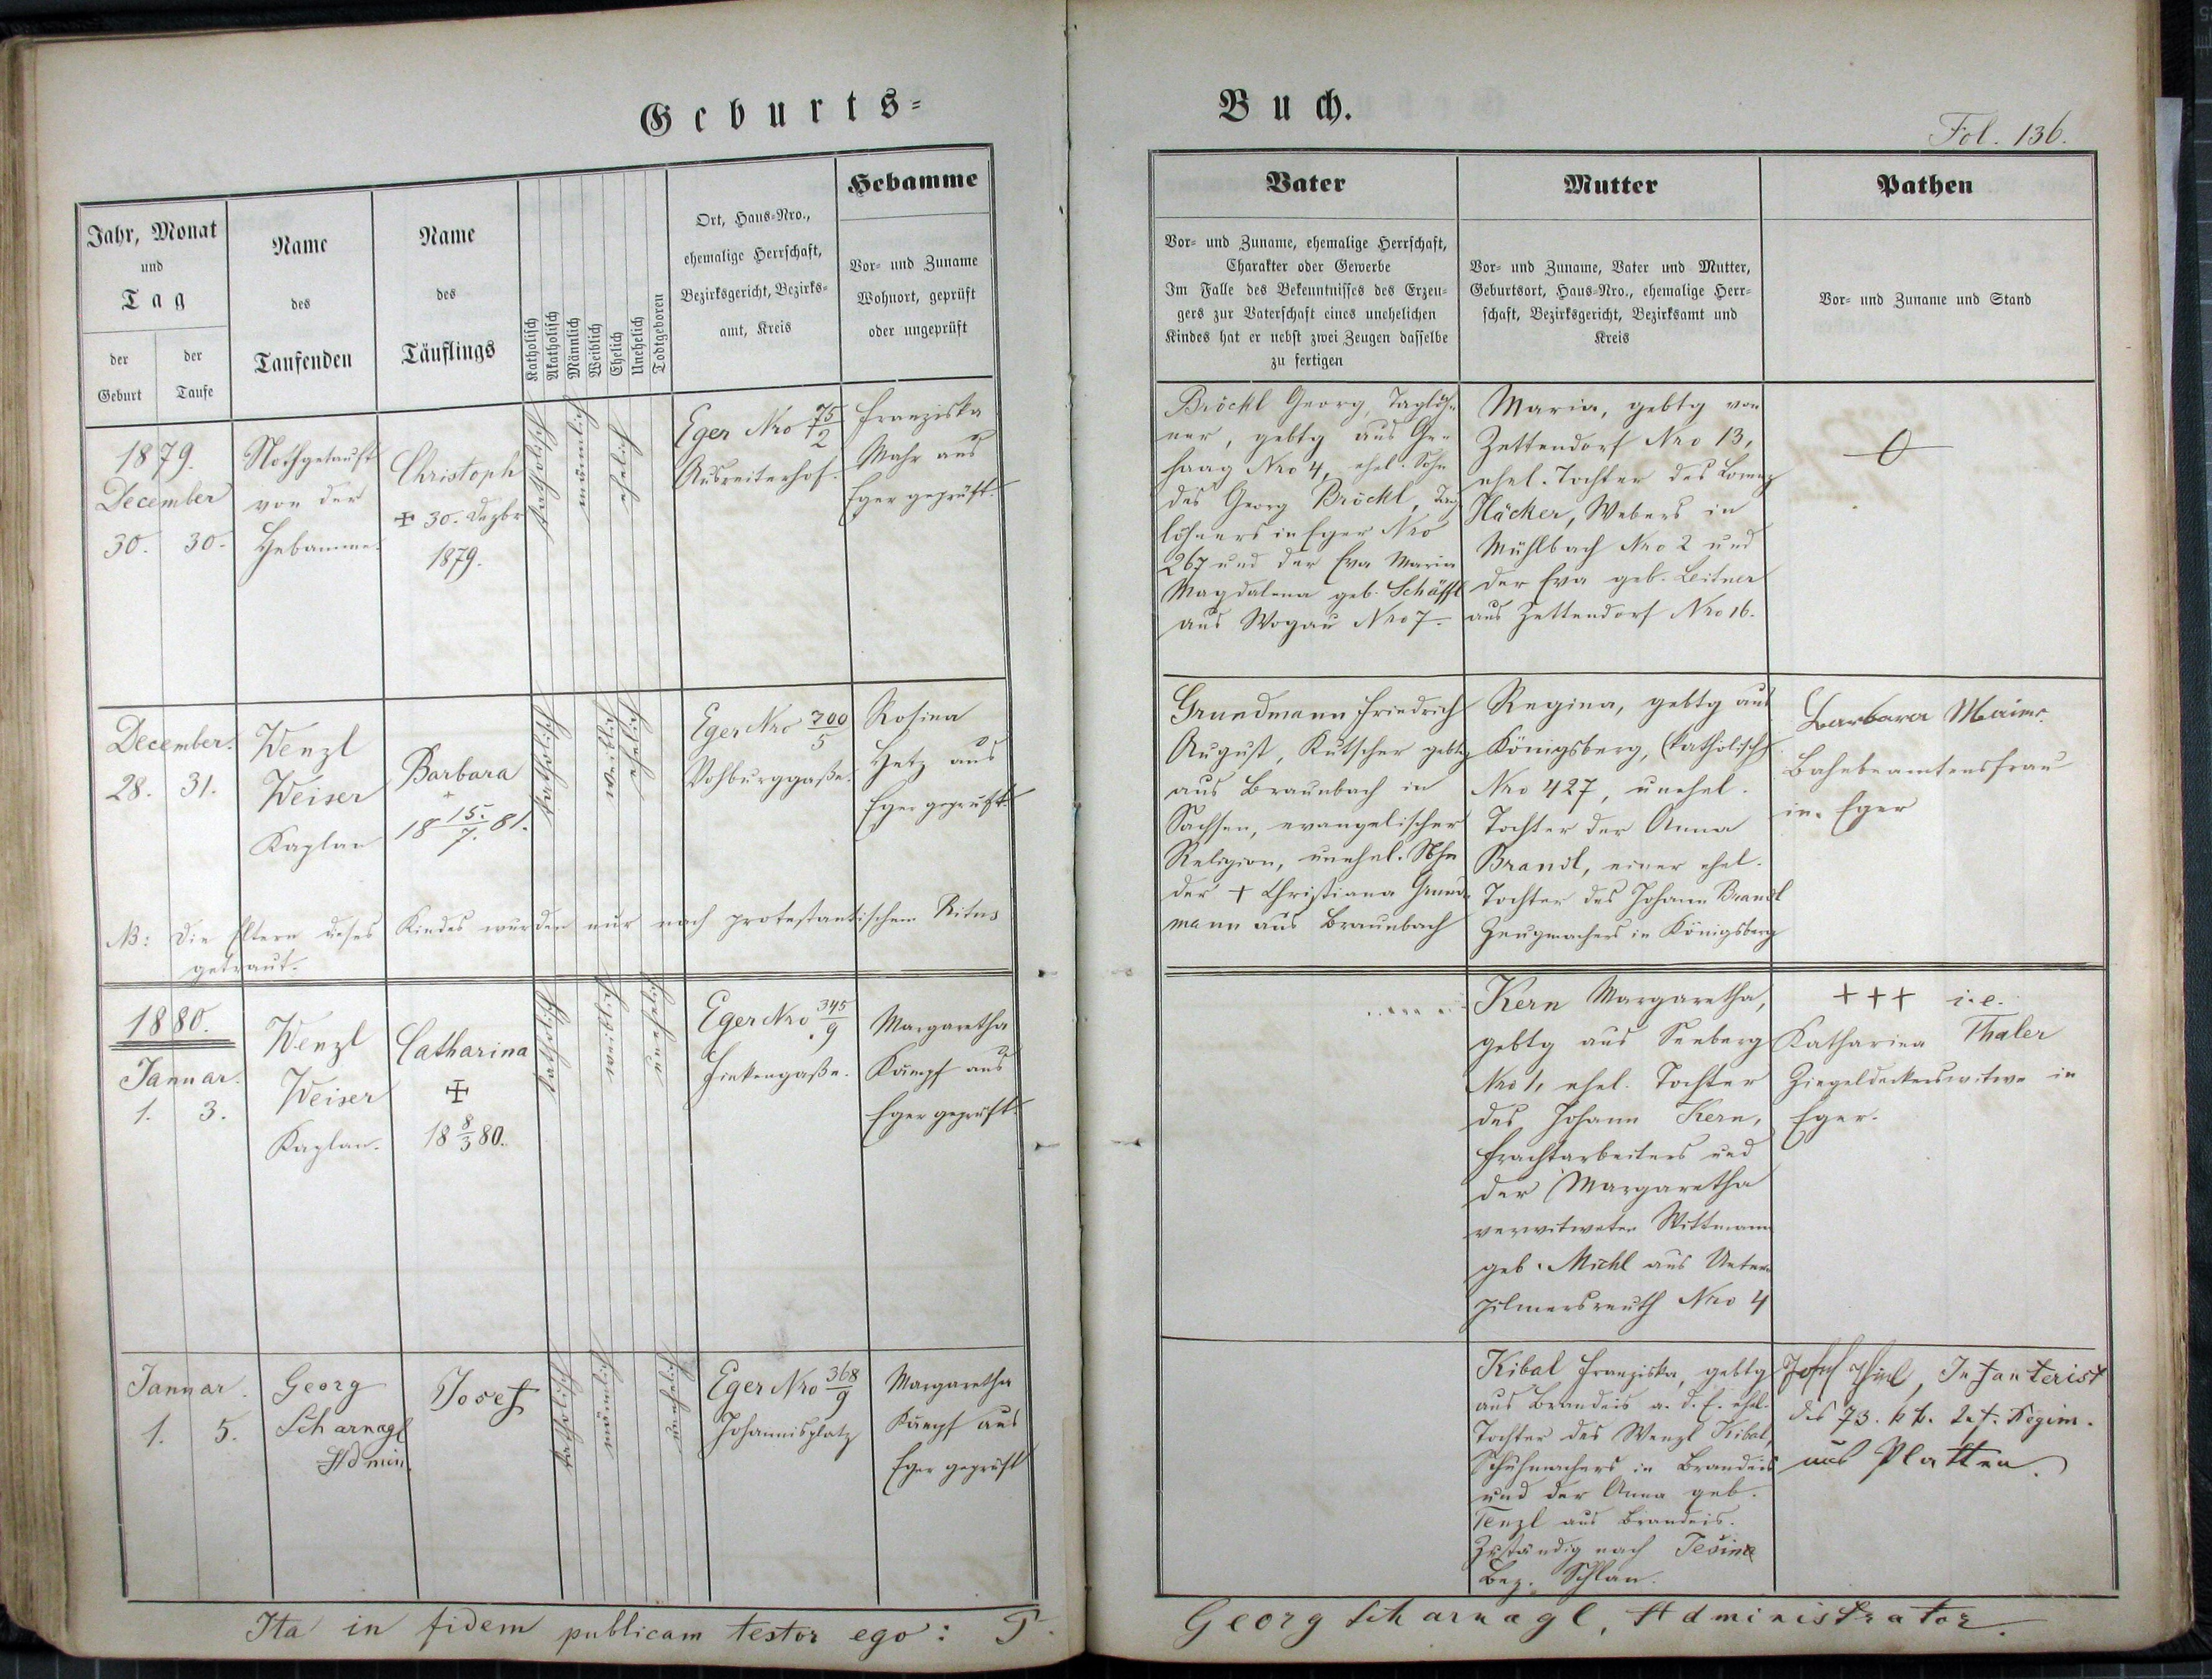 Geburts=
Buch.
Fol. 136.
Jahr, Monat
und
Tag
der
Geburt
der
Taufe
Name
des
Taufenden
Name
des
Täuflings
Katholisch
Akatholisch
Männlich
Weiblich
Ehelich
Unehelich
Todtgeboren
Ort, Haus-Nro.,
ehemalige Herrschaft,
Bezirksgericht, Bezirks=
amt, Kreis
Hebamme
Vor- und Zuname
Wohnort, geprüft
oder ungeprüft
Vater
Vor- und Zuname, ehemalige Herrschaft,
Charakter oder Gewerbe
Im Falle des Bekenntnisses des Erzeu=
gers zur Vaterschaft eines unehelichen
Kindes hat er nebst zwei Zeugen dasselbe
zu fertigen
Mutter
Vor- und Zuname, Vater und Mutter,
Geburtsort, Haus-Nro., ehemalige Herr=
schaft, Bezirksgericht, Bezirksamt und
Kreis
Pathen
Vor- und Zuname und Stand
1879.
December
30. 30.
Nothgetauft
von der
Hebamme.
Christoph
✠ 30. Dezbr
1879.
katholisch
männlich
ehelich
Eger Nro 75/2
Ausreiterhof.
Franziska
Mahr aus
Eger geprüft.
Bröckl Georg, Taglöh=
ner, gebtg aus Ge=
haag Nro 4, ehel. Sohn
des Georg Bröckl, Tag
löhners in Eger Nro
267 und der Eva Maria
Magdalena geb. Schäffl
aus Wogau Nro 7.
Maria, gebtg von
Zettendorf Nro 13,
ehel. Tochter des Lorenz
Häcker, Webers in
Mühlbach Nro 2 und
der Eva geb. Leitner
aus Zettendorf Nro 16.
December.
28. 31.
Wenzl
Weiser
Kaplan
Barbara
18 15./7. 81.
katholisch
weiblich
ehelich
Eger Nro 700/5
Vohburggaße.
Rosina
Hetz aus
Eger geprüft.
Grundmann Friedrich
August, Kutscher gebtg
aus Braunbach in
Sachsen, evangelischer
Religion, unehel. Sohn
der + Christiana Grund=
mann aus Braunbach
Regina, gebtg aus
Königsberg, (katholisch)
Nro 427, unehel.
Tochter der Anna
Brandl, einer ehel.
Tochter des Johann Brandl
Zeugmachers in Königsberg
Barbara
Bahnbeamtensfrau
in Eger
NB: Die Eltern dieses Kindes wurden nur nach protestantischem Ritus
getraut.
1880.
Januar.
1. 3.
Wenzl
Weiser
Kaplan.
Catharina
✠
18 8/3 80.
katholisch
weiblich
unehelich
Eger Nro 345/9
Finkengaße.
Margaretha
Kämpf aus
Eger geprüft.
Kern Margaretha,
gebtg aus Seeberg
Nro 1, ehel. Tochter
des Johann Kern,
Frachtarbeiters und
der Margaretha
verwitweten Wittmann
geb. Michl aus Unter=
pilmersreuth Nro 4
+++ i.e.
Katharina Thaler
Ziegeldeckerswitwe in
Eger.
Januar.
1. 5.
Georg
Scharnagl
Admin.
Josef
katholisch
männlich
unehelich
Eger Nro 368/9
Johannisplatz
Margaretha
Kämpf aus
Eger geprüft
Kibal Franziska, gebtg
aus Brandeis a. d. E. ehel.
Tochter des Wenzl Kibal,
Schuhmachers in Brandeis
und der Anna geb.
Tenzl aus Brandeis.
Zuständig nach
Bez. Schlan.
Josef Infanterist
des 73. k k. Inf. Regim.
aus Platten.
Ita in fidem publicam testor ego: P.
Georg Scharnagl, Administrator.